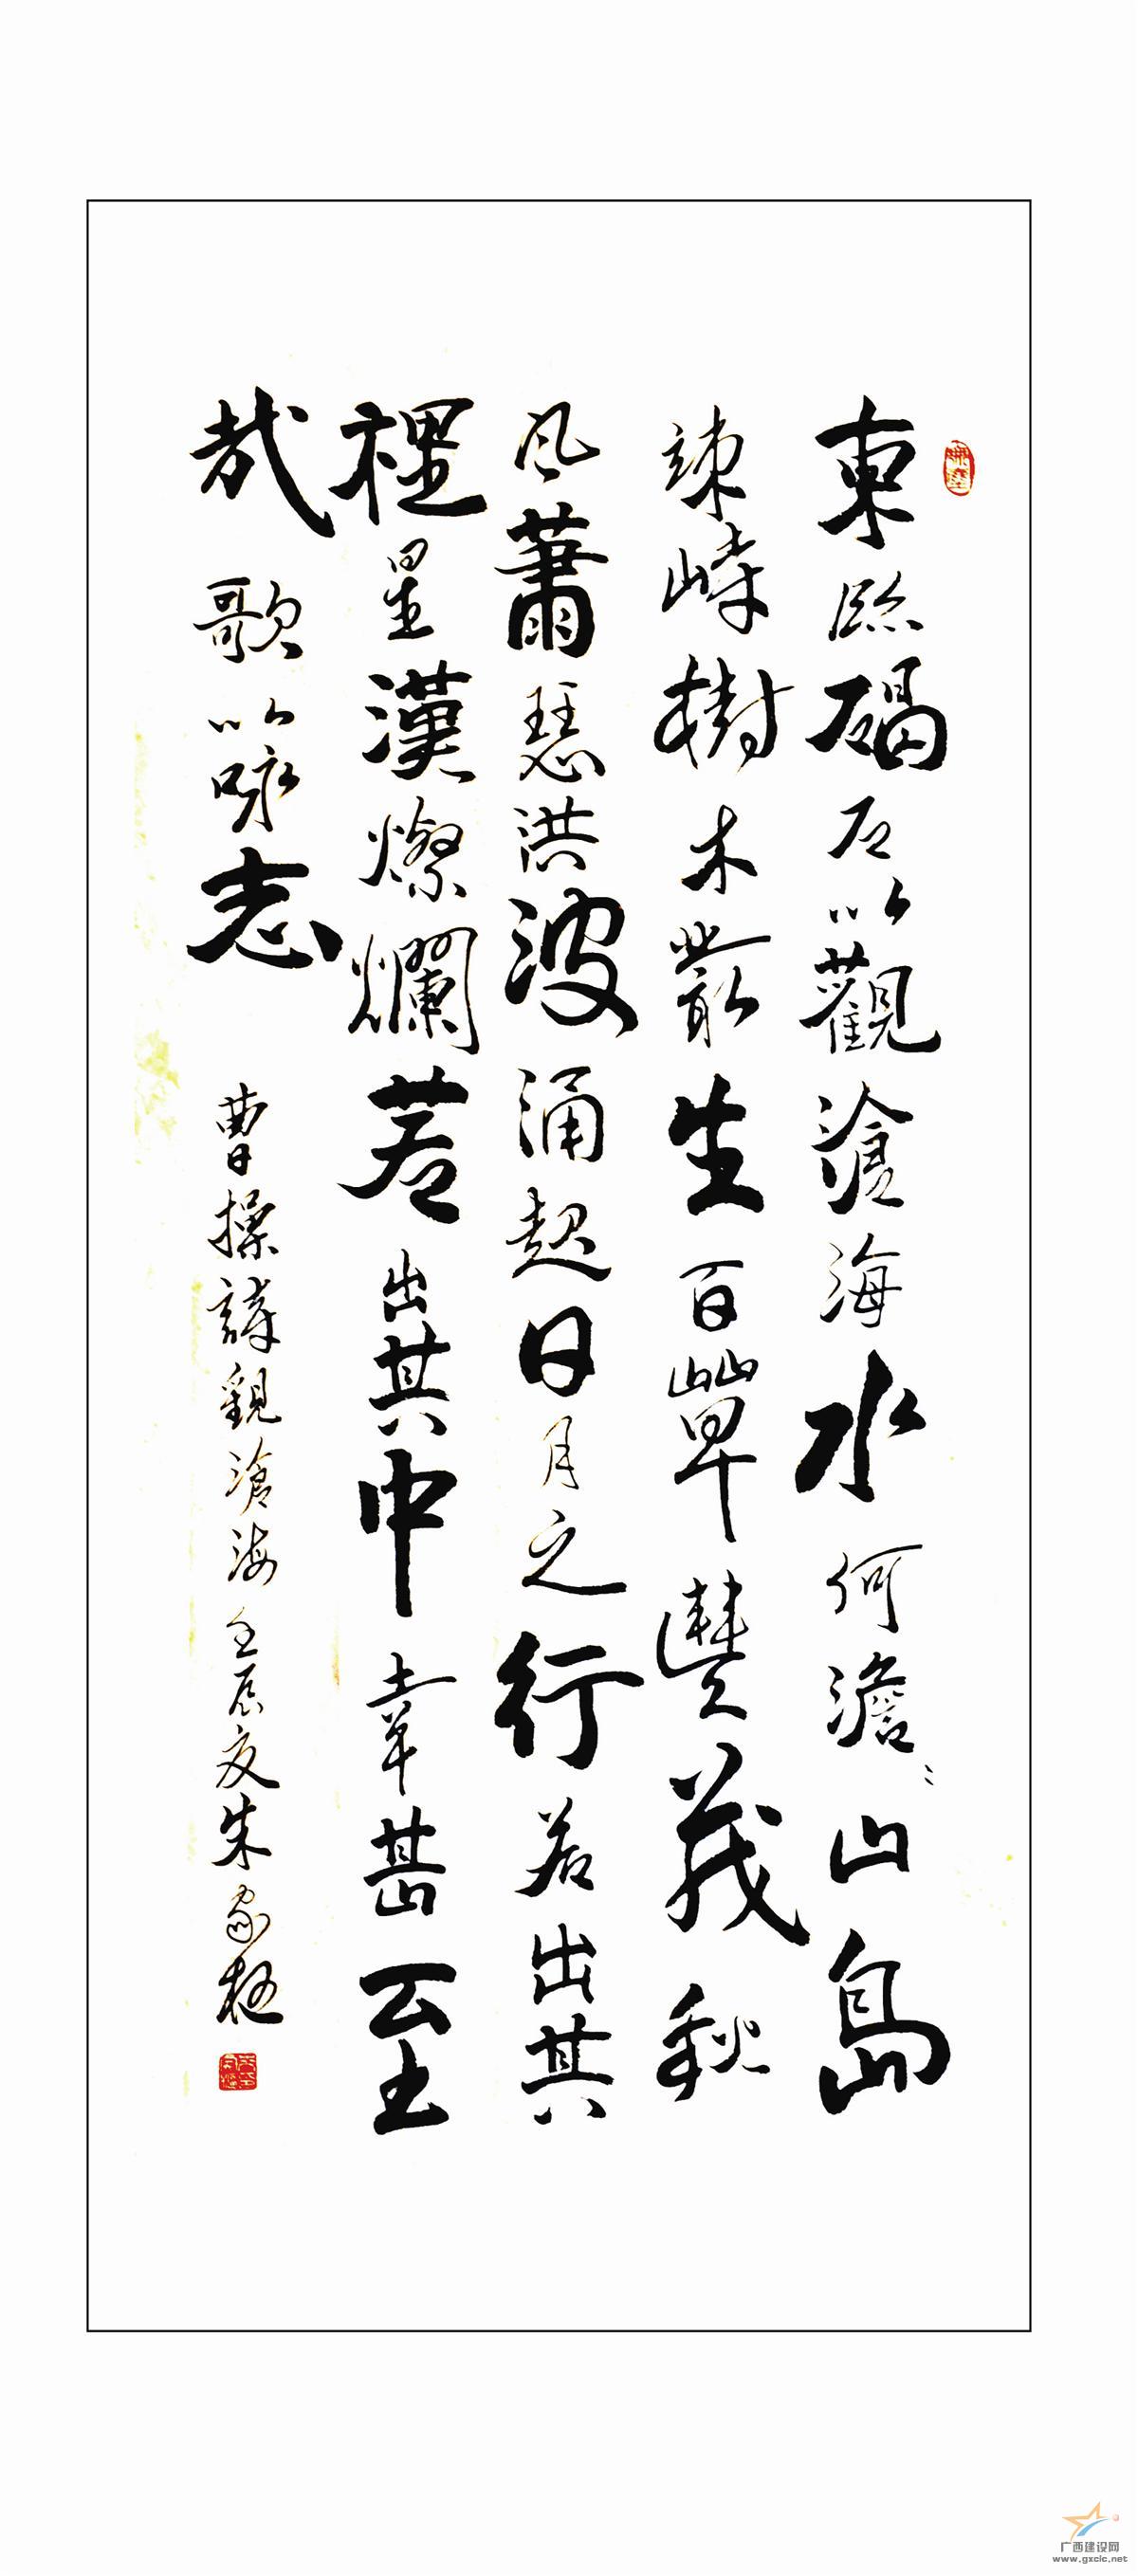 東臨碣石以觀滄海水何澹〻山島
竦峙樹木叢生百草豐茂秋
风蕭瑟洪波涌起日月之行若出其
裡星漢燦爛若出其中幸甚至
哉歌以咏志
曹操詩觀滄海壬辰夏朱家
广西建设网
www.gxcic.net